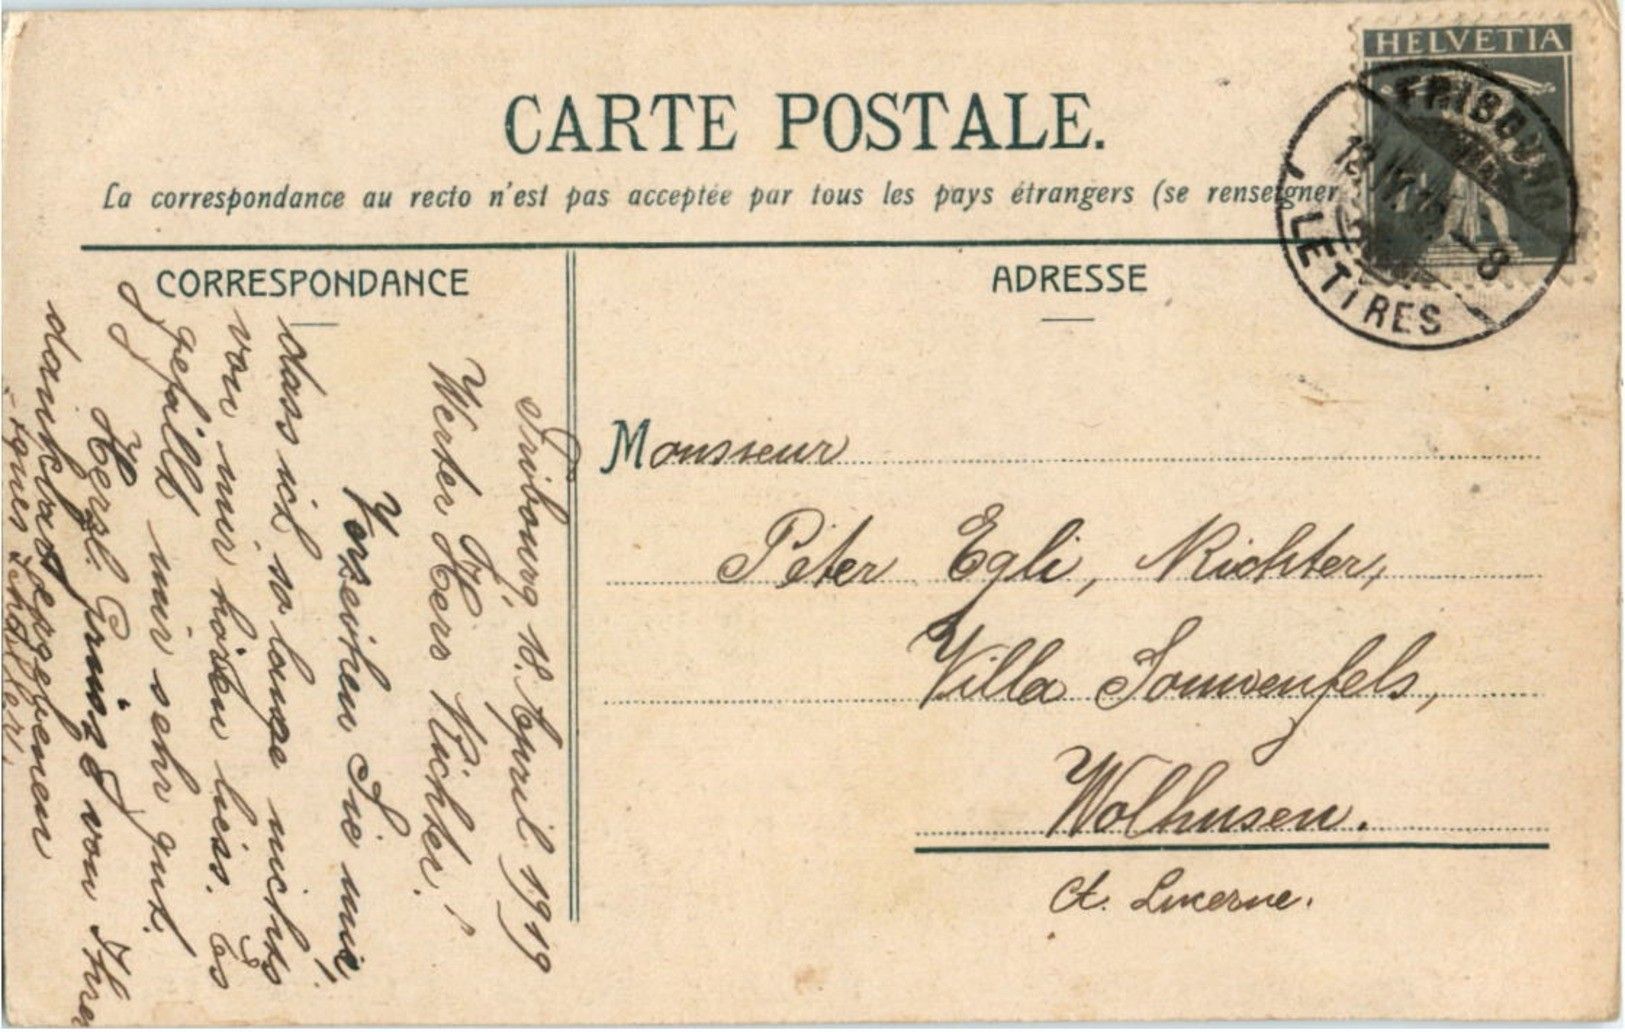 CARTE POSTALE.
La correspondance au recto n'est pas acceptée par tous les pays étrangers (se renseigner
CORRESPONDANCE
Fribourg, 18. April 1919
Werter Herr Richter!
Verzeihen Sie mir,
dass ich so lange nichts
von mir hören liess. Es
gefällt mir sehr gut.
Herzl. Grüsse von Ihrer
dankbar ergebenen
Agnes
ADRESSE
Monsieur
Peter Egli, Richter,
Villa Sonnenfels,
Wolhusen.
Ct. Lucerne.
HELVETIA
FRIBOURG
LETTRES